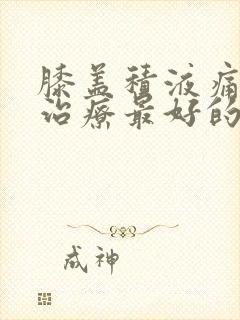 膝盖积液痛
治疗最好的
成神